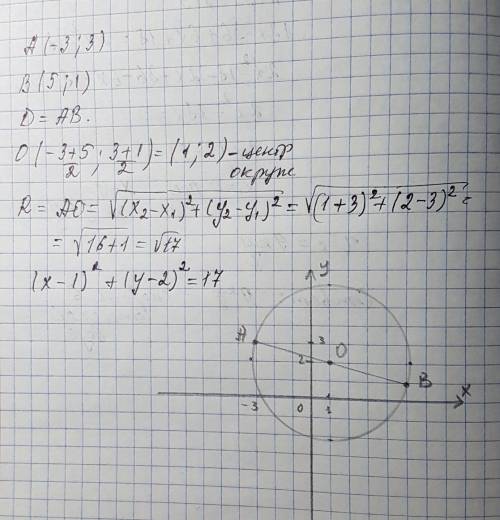 A(-3; 3)
B(5; 1)
D = AB.
O(-3+5/2 ; 3+1/2) = (1; 2) - центр
окруж
R = AO = √(x₂-x₁)²+(y₂-y₁)² = √(1+3)²+(2-3)² =
= √16+1 = √17
(x-1)²+(y-2)²=17
y
A
3
O
2
B
x
-3
0
1